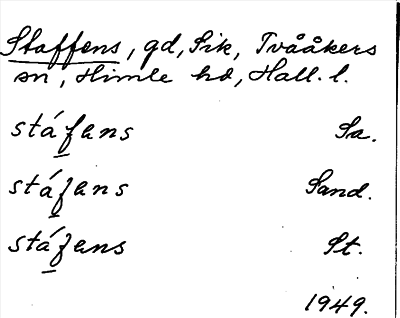 Staffens, gd, Sik, Tvååkers
sn, Himle hd, Hall. l.
stáfans Sa.
stáfans Sand.
stáfans St.
1949.